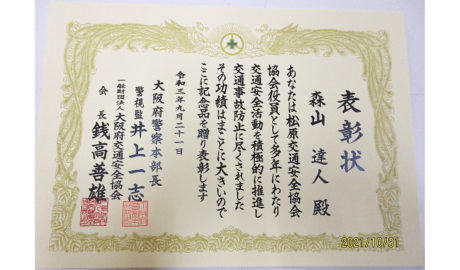 表彰状
森山 達人 殿
あなたは松原交通安全協会
協会役員として多年にわたり
交通安全活動を積極的に推進し
交通事故防止に尽くされました
その功績はまことに大きいので
ここに記念品を贈り表彰します
令和三年九月二十一日
大阪府警察本部長
警視監 井上一志
一般財団法人 大阪府交通安全協会
会長 銭高善雄
2021/10/31